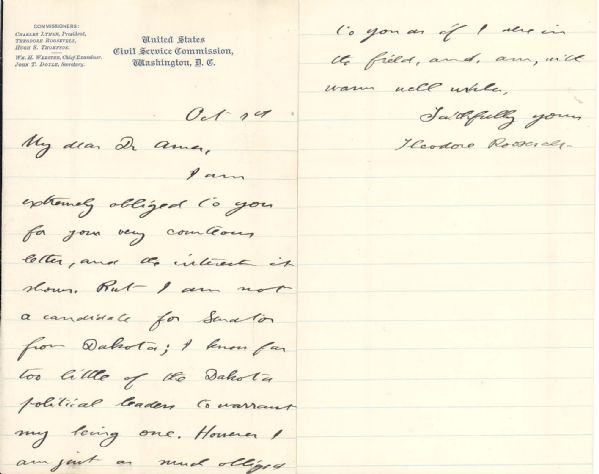 COMMISSIONERS:
CHARLES LYMAN, President,
THEODORE ROOSEVELT,
HUGH S. THOMPSON.
WM. H. WEBSTER, Chief Examiner.
JOHN T. DOYLE, Secretary.
United States
Civil Service Commission,
Washington, D. C.
Oct
My dear Dr
I am
extremely obliged to you
for your very courteous
letter, and the interest it
shows. But I am not
a candidate for Senator
from Dakota; I know far
too little of the Dakota
political leaders to warrant
my being one. However I
am just as much obliged
to you as if I were in
the field, and, am, with
warm well wishes,
Faithfully yours
Theodore Roosevelt